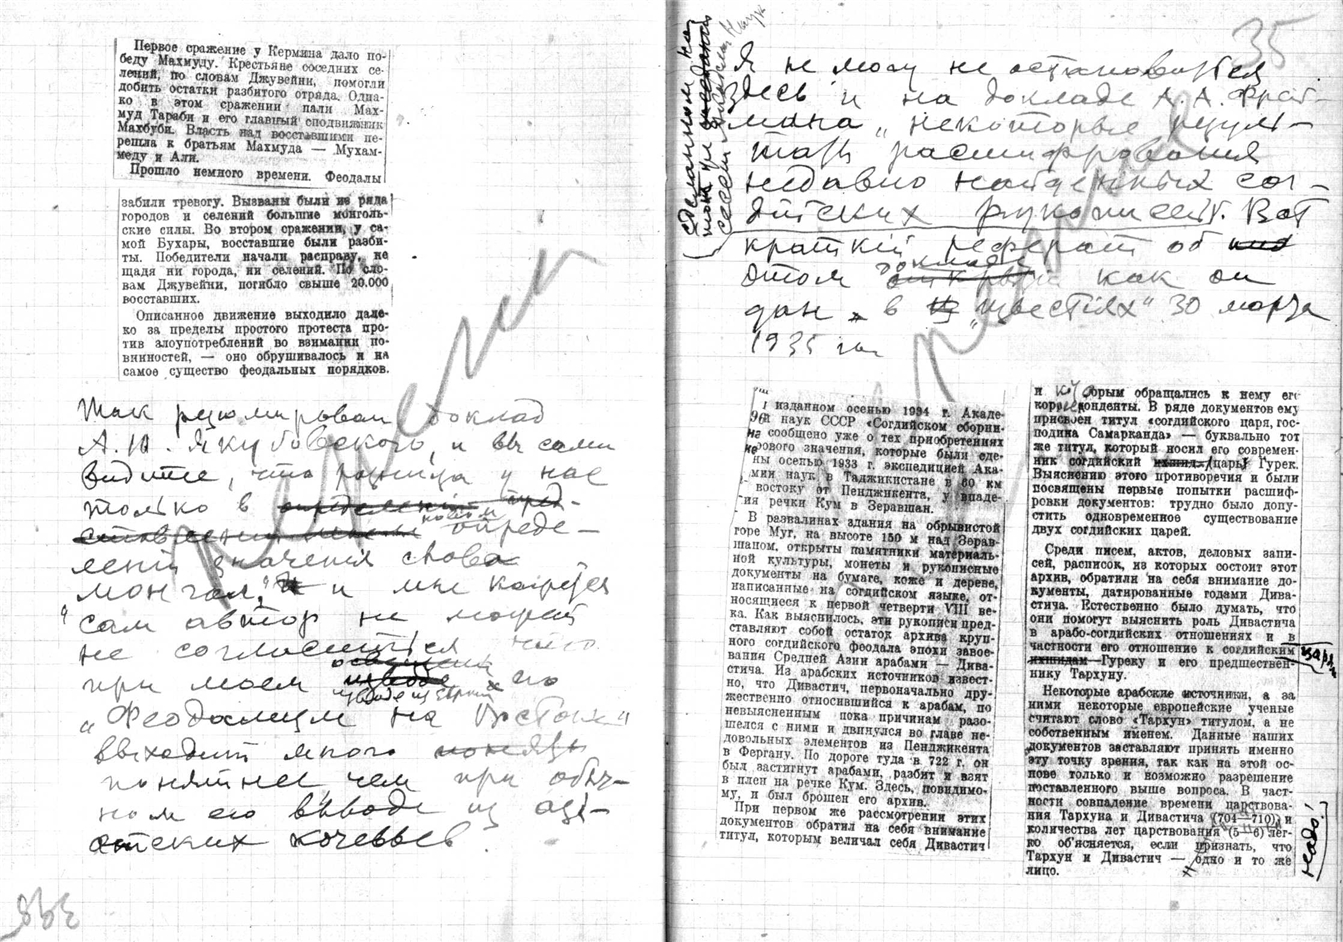 Первое сражение у Кермина дало по-
беду Махмуду. Крестьяне соседних се-
лений, по словам Джувейни, помогли
добить остатки разбитого отряда. Одна-
ко в этом сражении пали Мах-
муд Тараби и его главный сподвижник
Махбуби. Власть над восставшими пе-
решла к братьям Махмуда — Мухам-
меду и Али.
Прошло немного времени. Феодалы
забили тревогу. Вызваны были из ряда
городов и селений большие монголь-
ские силы. Во втором сражении, у са-
мой Бухары, восставшие были разби-
ты. Победители начали расправу, не
щадя ни города, ни селений. По сло-
вам Джувейни, погибло свыше 20.000
восставших.
Описанное движение выходило дале-
ко за пределы простого протеста про-
тив злоупотреблений во взимании по-
винностей, — оно обрушивалось и на
самое существо феодальных порядков.
Так резюмирован доклад
А. Ю. Якубовского, и вы сами
видите, что разница у нас
только в
новом опреде-
лении значения слова
монгол, и мне кажется
сам автор не может
не согласиться что
при моем его
выводе из
„Феодализм на Востоке“
выходит много
понятнее, чем при обыч-
ном его выводе из ази-
атских кочевьев.
398
35
сделанном на
той же
сессии Академии Наук
Я не могу не остановиться
здесь и на докладе А. А. Фрей-
мана „некоторые резуль-
таты расшифрования
недавно найденных сог-
дийских рукописей". Вот
краткий реферат об
этом докладе как он
дан в „Известиях" 30 марта
1935 г.
В изданном осенью 1934 г. Акаде-
мией наук СССР «Согдийском сборни-
ке» сообщено уже о тех приобретениях
мирового значения, которые были сде-
ланы осенью 1933 г. экспедицией Ака-
демии наук в Таджикистане в 60 км
к востоку от Пенджикента, у впаде-
ния речки Кум в Зеравшан.
В развалинах здания на обрывистой
горе Муг, на высоте 150 м над Зерав-
шаном, открыты памятники материаль-
ной культуры, монеты и рукописные
документы на бумаге, коже и дереве,
написанные на согдийском языке, от-
носящиеся к первой четверти VIII ве-
ка. Как выяснилось, эти рукописи пред-
ставляют собой остаток архива круп-
ного согдийского феодала эпохи завое-
вания Средней Азии арабами — Дива-
стича. Из арабских источников извест-
но, что Дивастич, первоначально дру-
жественно относившийся к арабам, по
невыясненным пока причинам разо-
шелся с ними и двинулся во главе не-
довольных элементов из Пенджикента
в Фергану. По дороге туда в 722 г. он
был застигнут арабами, разбит и взят
в плен на речке Кум. Здесь, повидимо-
му, и был брошен его архив.
При первом же рассмотрении этих
документов обратил на себя внимание
титул, которым величал себя Дивастич
и которым обращались к нему его
корреспонденты. В ряде документов ему
присвоен титул «согдийского царя, гос-
подина Самарканда» — буквально тот
же титул, который носил его современ-
ник согдийский ихшид (царь) Гурек.
Выяснению этого противоречия и были
посвящены первые попытки расшиф-
ровки документов: трудно было допу-
стить одновременное существование
двух согдийских царей.
Среди писем, актов, деловых запи-
сей, расписок, из которых состоит этот
архив, обратили на себя внимание до-
кументы, датированные годами Дива-
стича. Естественно было думать, что
они помогут выяснить роль Дивастича
в арабо-согдийских отношениях и в
частности его отношение к согдийским
царям
ихшидам Гуреку и его предшествен-
нику Тархуну.
Некоторые арабские источники, а за
ними некоторые европейские ученые
считают слово «Тархун» титулом, а не
собственным именем. Данные наших
документов заставляют принять именно
эту точку зрения, так как на этой ос-
нове только и возможно разрешение
поставленного выше вопроса. В част-
ности совпадение времени царствова-
ния Тархуна и Дивастича (704—710) и
количества лет царствования (5—6) лег-
ко об'ясняется, если признать, что
Тархун и Дивастич — одно и то же
лицо.
надо!